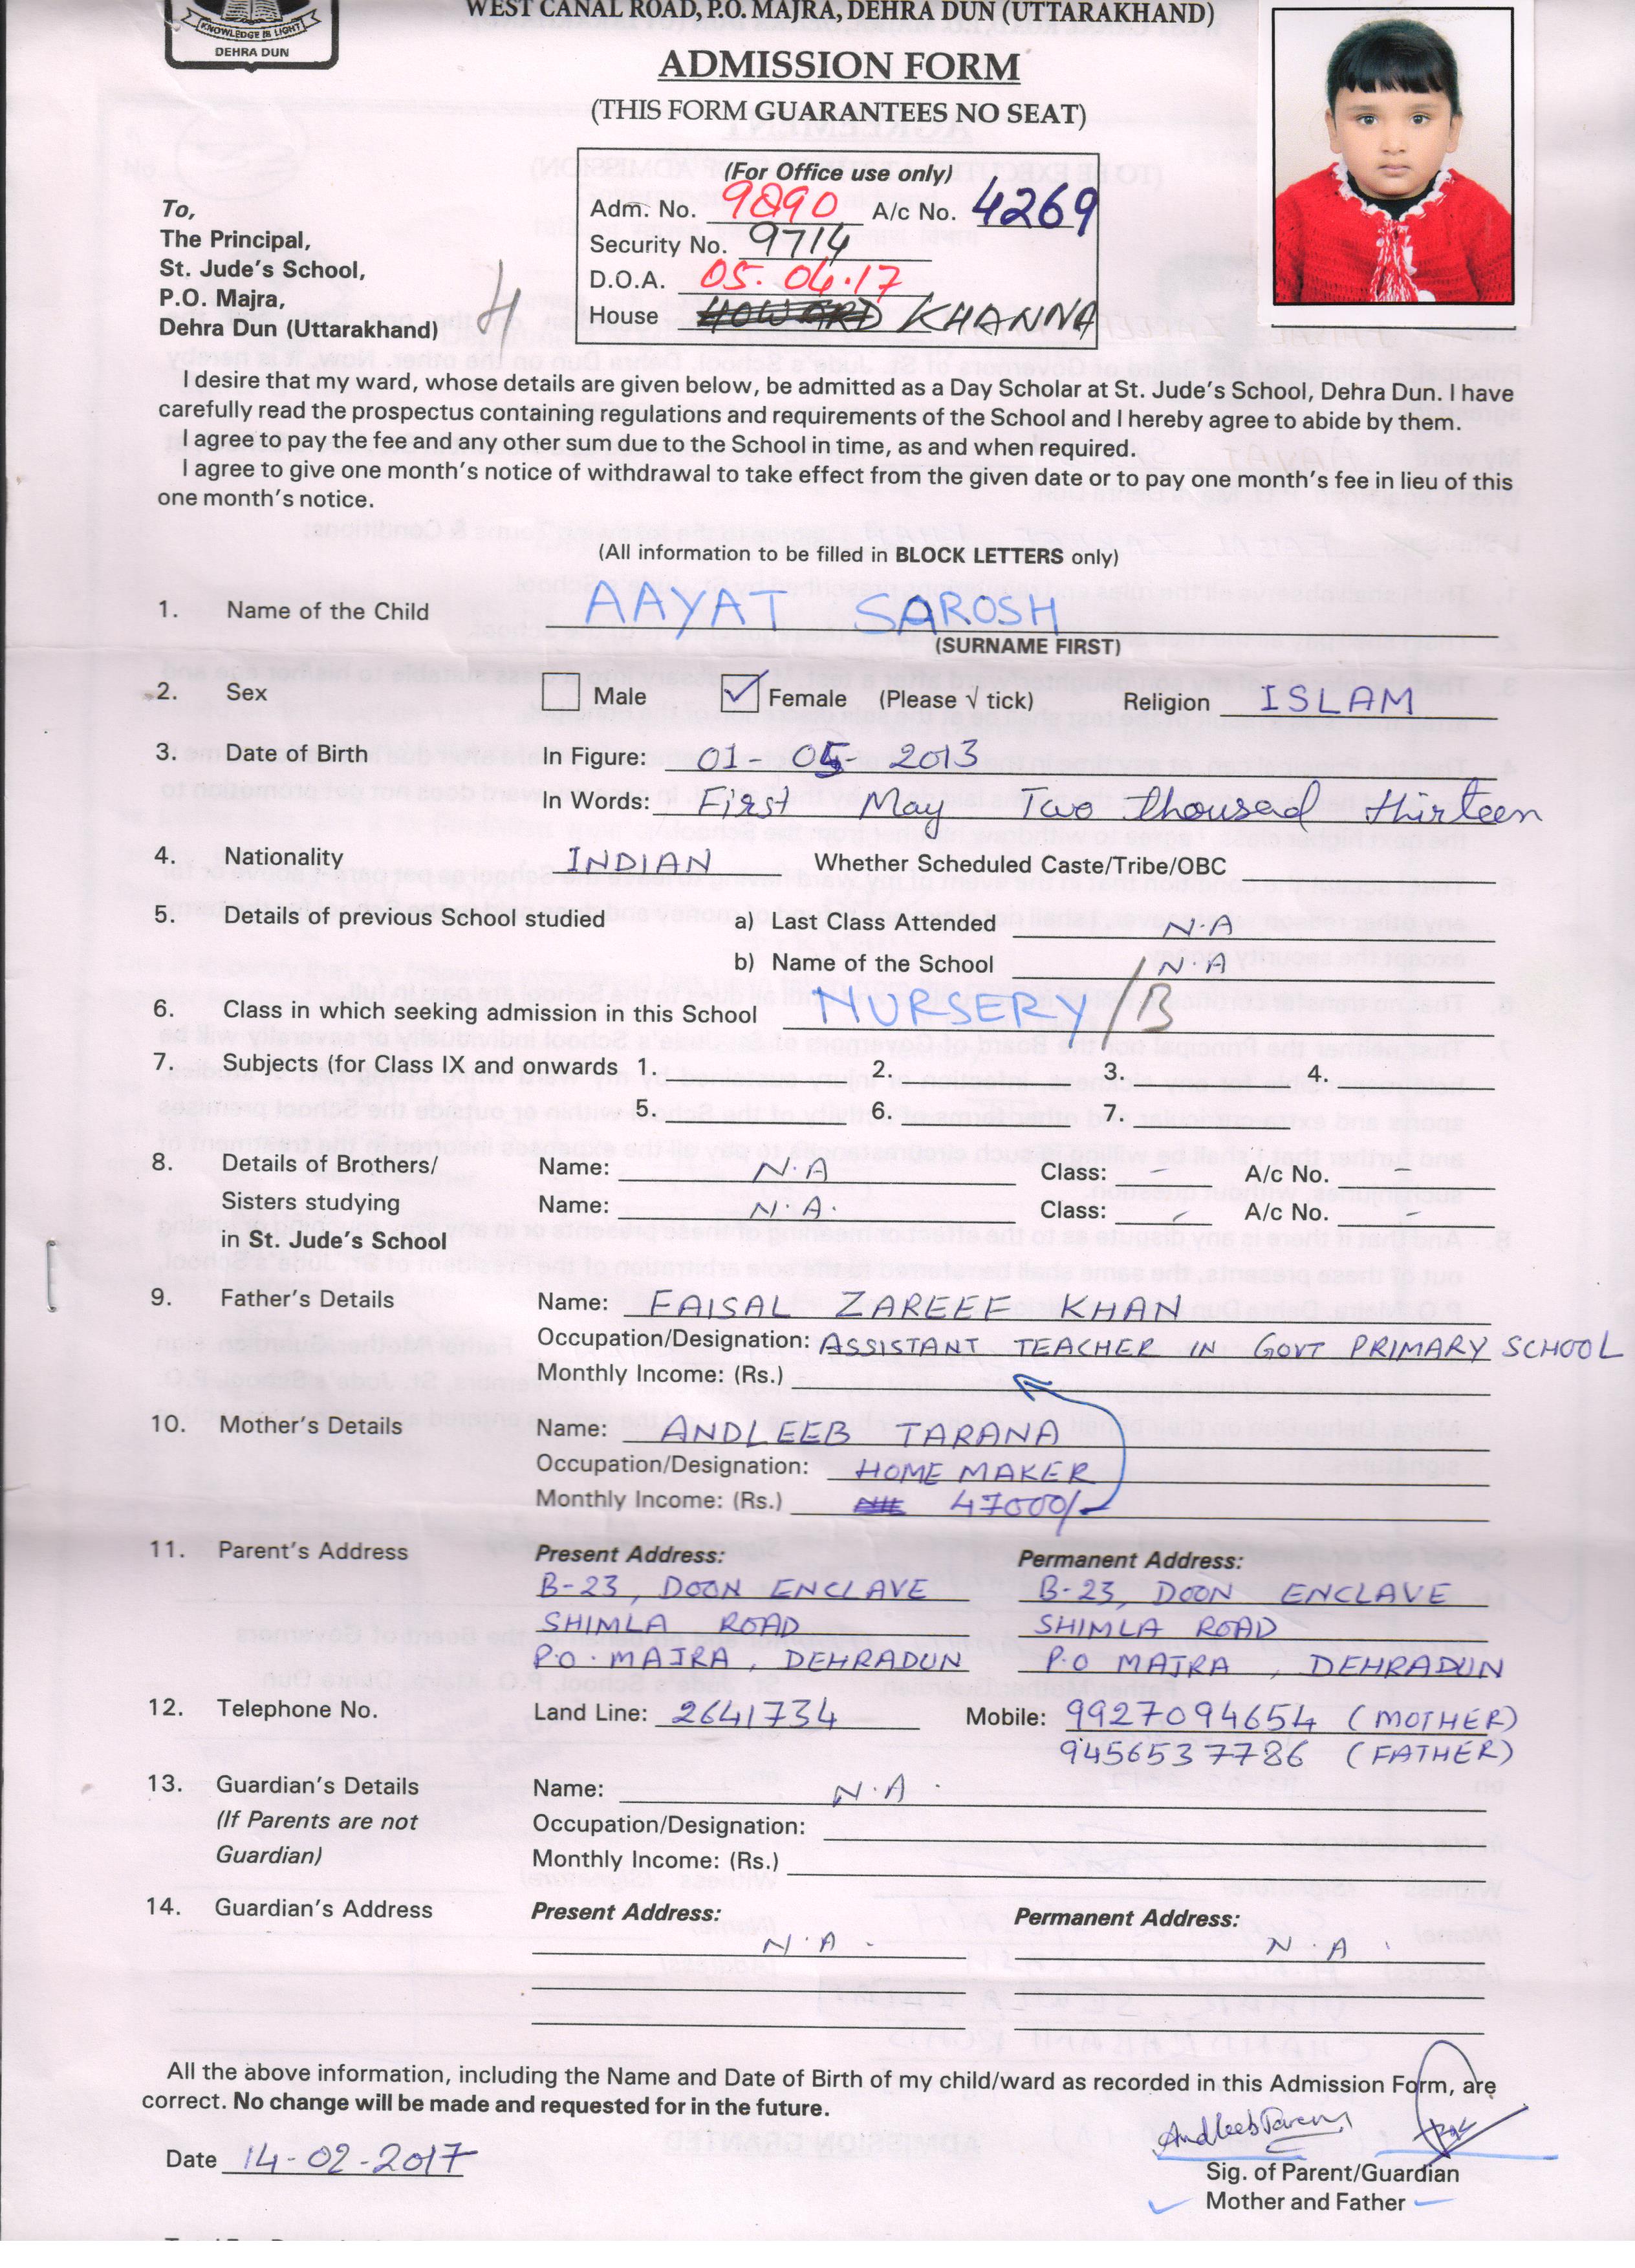 KNOWLEDGE IS LIGHT
DEHRA DUN
WEST CANAL ROAD, P.O. MAJRA, DEHRA DUN (UTTARAKHAND)
ADMISSION FORM
(THIS FORM GUARANTEES NO SEAT)
(For Office use only)
Adm. No. 9890 A/c No. 4269
Security No. 9714
D.O.A. 05.04.17
House HOWARD KHANNA
To,
The Principal,
St. Jude's School,
P.O. Majra,
Dehra Dun (Uttarakhand)
H
I desire that my ward, whose details are given below, be admitted as a Day Scholar at St. Jude's School, Dehra Dun. I have
carefully read the prospectus containing regulations and requirements of the School and I hereby agree to abide by them.
I agree to pay the fee and any other sum due to the School in time, as and when required.
I agree to give one month's notice of withdrawal to take effect from the given date or to pay one month's fee in lieu of this
one month's notice.
(All information to be filled in BLOCK LETTERS only)
1. Name of the Child AAYAT SAROSH
(SURNAME FIRST)
2. Sex Male Female (Please √ tick) Religion ISLAM
3. Date of Birth In Figure: 01-05-2013
In Words: First May Two thousad thirteen
4. Nationality INDIAN Whether Scheduled Caste/Tribe/OBC
5. Details of previous School studied a) Last Class Attended N.A
b) Name of the School N.A
6. Class in which seeking admission in this School NURSERY/B
7. Subjects (for Class IX and onwards 1. 2. 3. 4.
5. 6. 7.
8. Details of Brothers/ Name: N.A Class: - A/c No. -
Sisters studying Name: N.A. Class: - A/c No. -
in St. Jude's School
9. Father's Details Name: FAISAL ZAREEF KHAN
Occupation/Designation: ASSISTANT TEACHER IN GOVT PRIMARY SCHOOL
Monthly Income: (Rs.)
10. Mother's Details Name: ANDLEEB TARANA
Occupation/Designation: HOME MAKER
Monthly Income: (Rs.) 47000/-
11. Parent's Address Present Address: Permanent Address:
B-23, DOON ENCLAVE B-23, DOON ENCLAVE
SHIMLA ROAD SHIMLA ROAD
P.O. MAJRA, DEHRADUN P.O MAJRA, DEHRADUN
12. Telephone No. Land Line: 2641734 Mobile: 9927094654 (MOTHER)
9456537786 (FATHER)
13. Guardian's Details Name: N.A.
(If Parents are not Occupation/Designation:
Guardian) Monthly Income: (Rs.)
14. Guardian's Address Present Address: Permanent Address:
N.A. N.A.
All the above information, including the Name and Date of Birth of my child/ward as recorded in this Admission Form, are
correct. No change will be made and requested for in the future.
Date 14-02-2017
Sig. of Parent/Guardian
Mother and Father